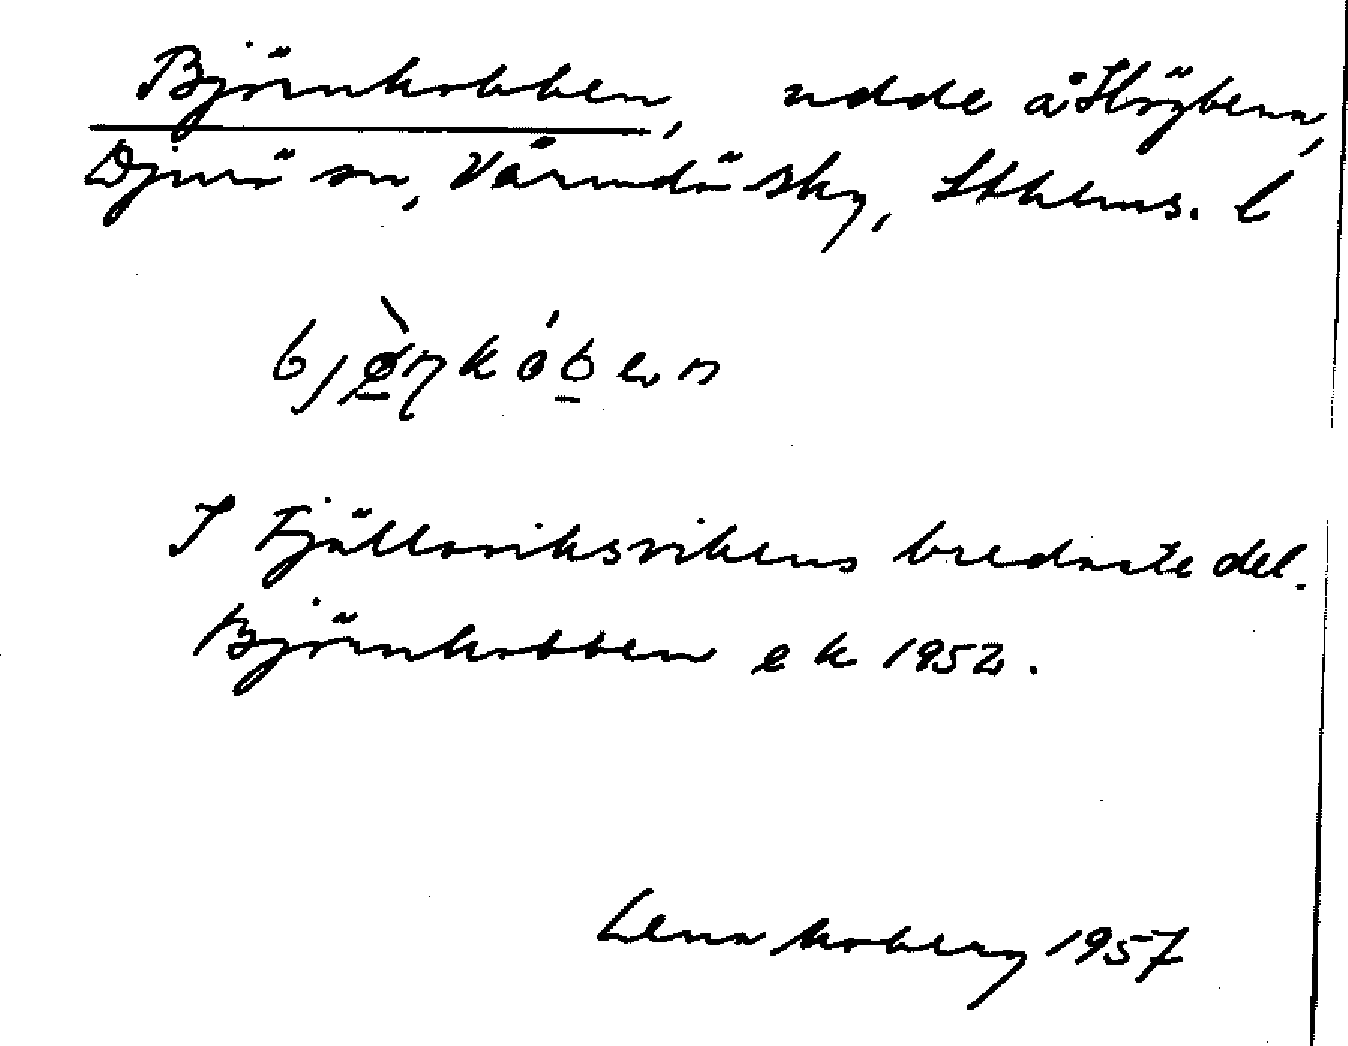 Björnkobben, udde å Högbena,
Djurö sn, Värmdö sky, Sthlms. l
I Fjällsviksvikens bredaste del.
Björnkobben e k 1952.
Lena Moberg 1957